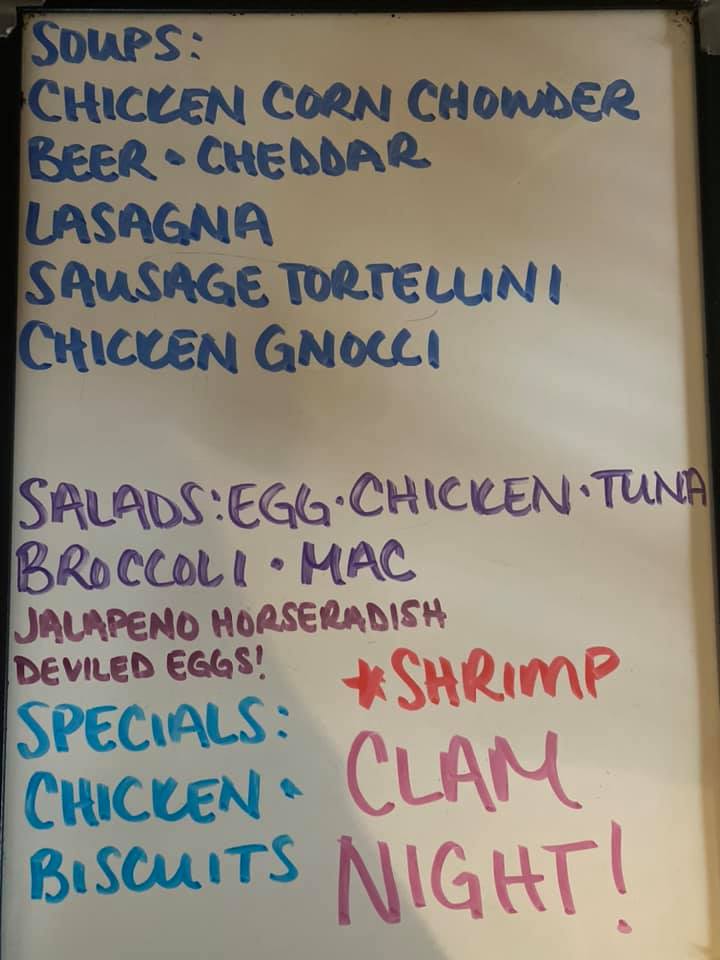 SOUPS:
CHICKEN CORN CHOWDER
BEER • CHEDDAR
LASAGNA
SAUSAGE TORTELLINI
CHICKEN GNOCCI
SALADS: EGG • CHICKEN • TUNA
BROCCOLI • MAC
JALAPENO HORSERADISH
DEVILED EGGS!
SPECIALS:
CHICKEN •
BISCUITS
*SHRIMP
CLAM
NIGHT!